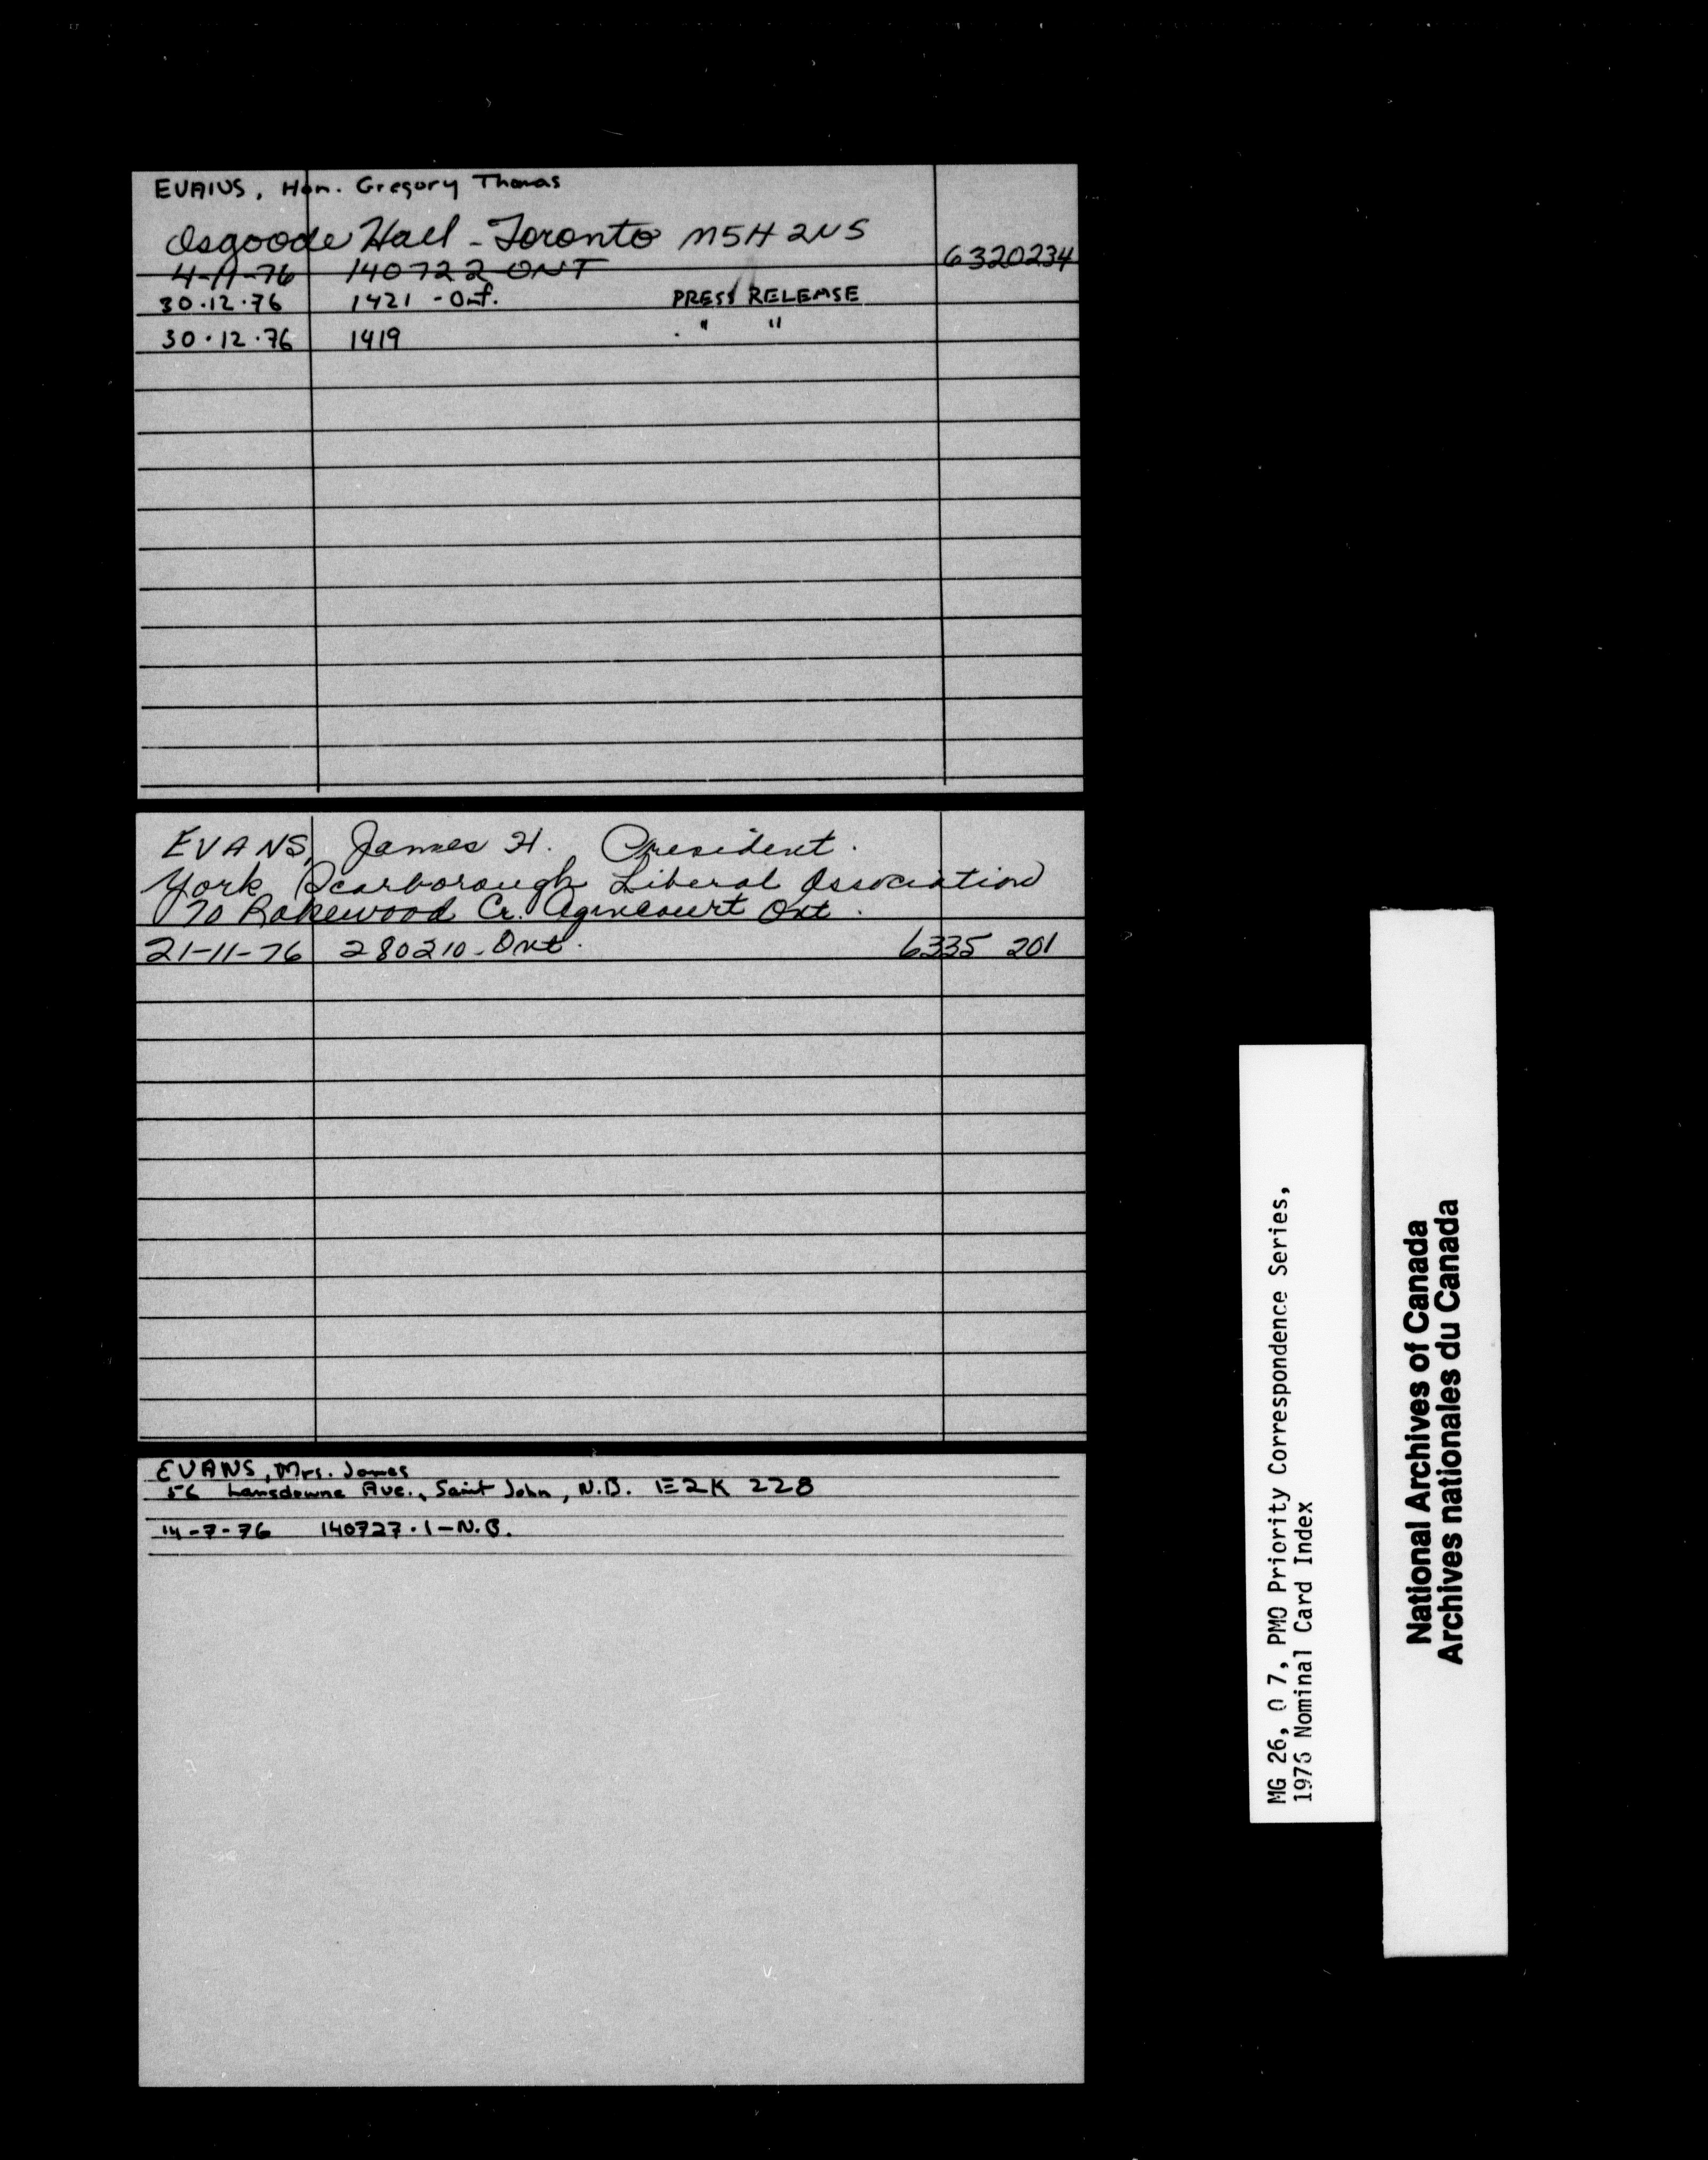 EVANS, Hon. Gregory Thomas
Osgoode Hall - Toronto M5H 2N5
4-11-76 140722 ONT 6320234
30.12.76 1421 - Ont. PRESS RELEASE
30.12.76 1419 " "
EVANS, James H. President.
York Scarborough Liberal Association
70 Rakewood Cr. Agincourt Ont.
21-11-76 280210-Ont. 6335 201
EVANS, Mrs. James
56 Lansdowne Ave., Saint John, N.B. E2K 228
14-7-76 140727.1-N.B.
MG 26, O 7, PMO Priority Correspondence Series,
1976 Nominal Card Index
National Archives of Canada
Archives nationales du Canada